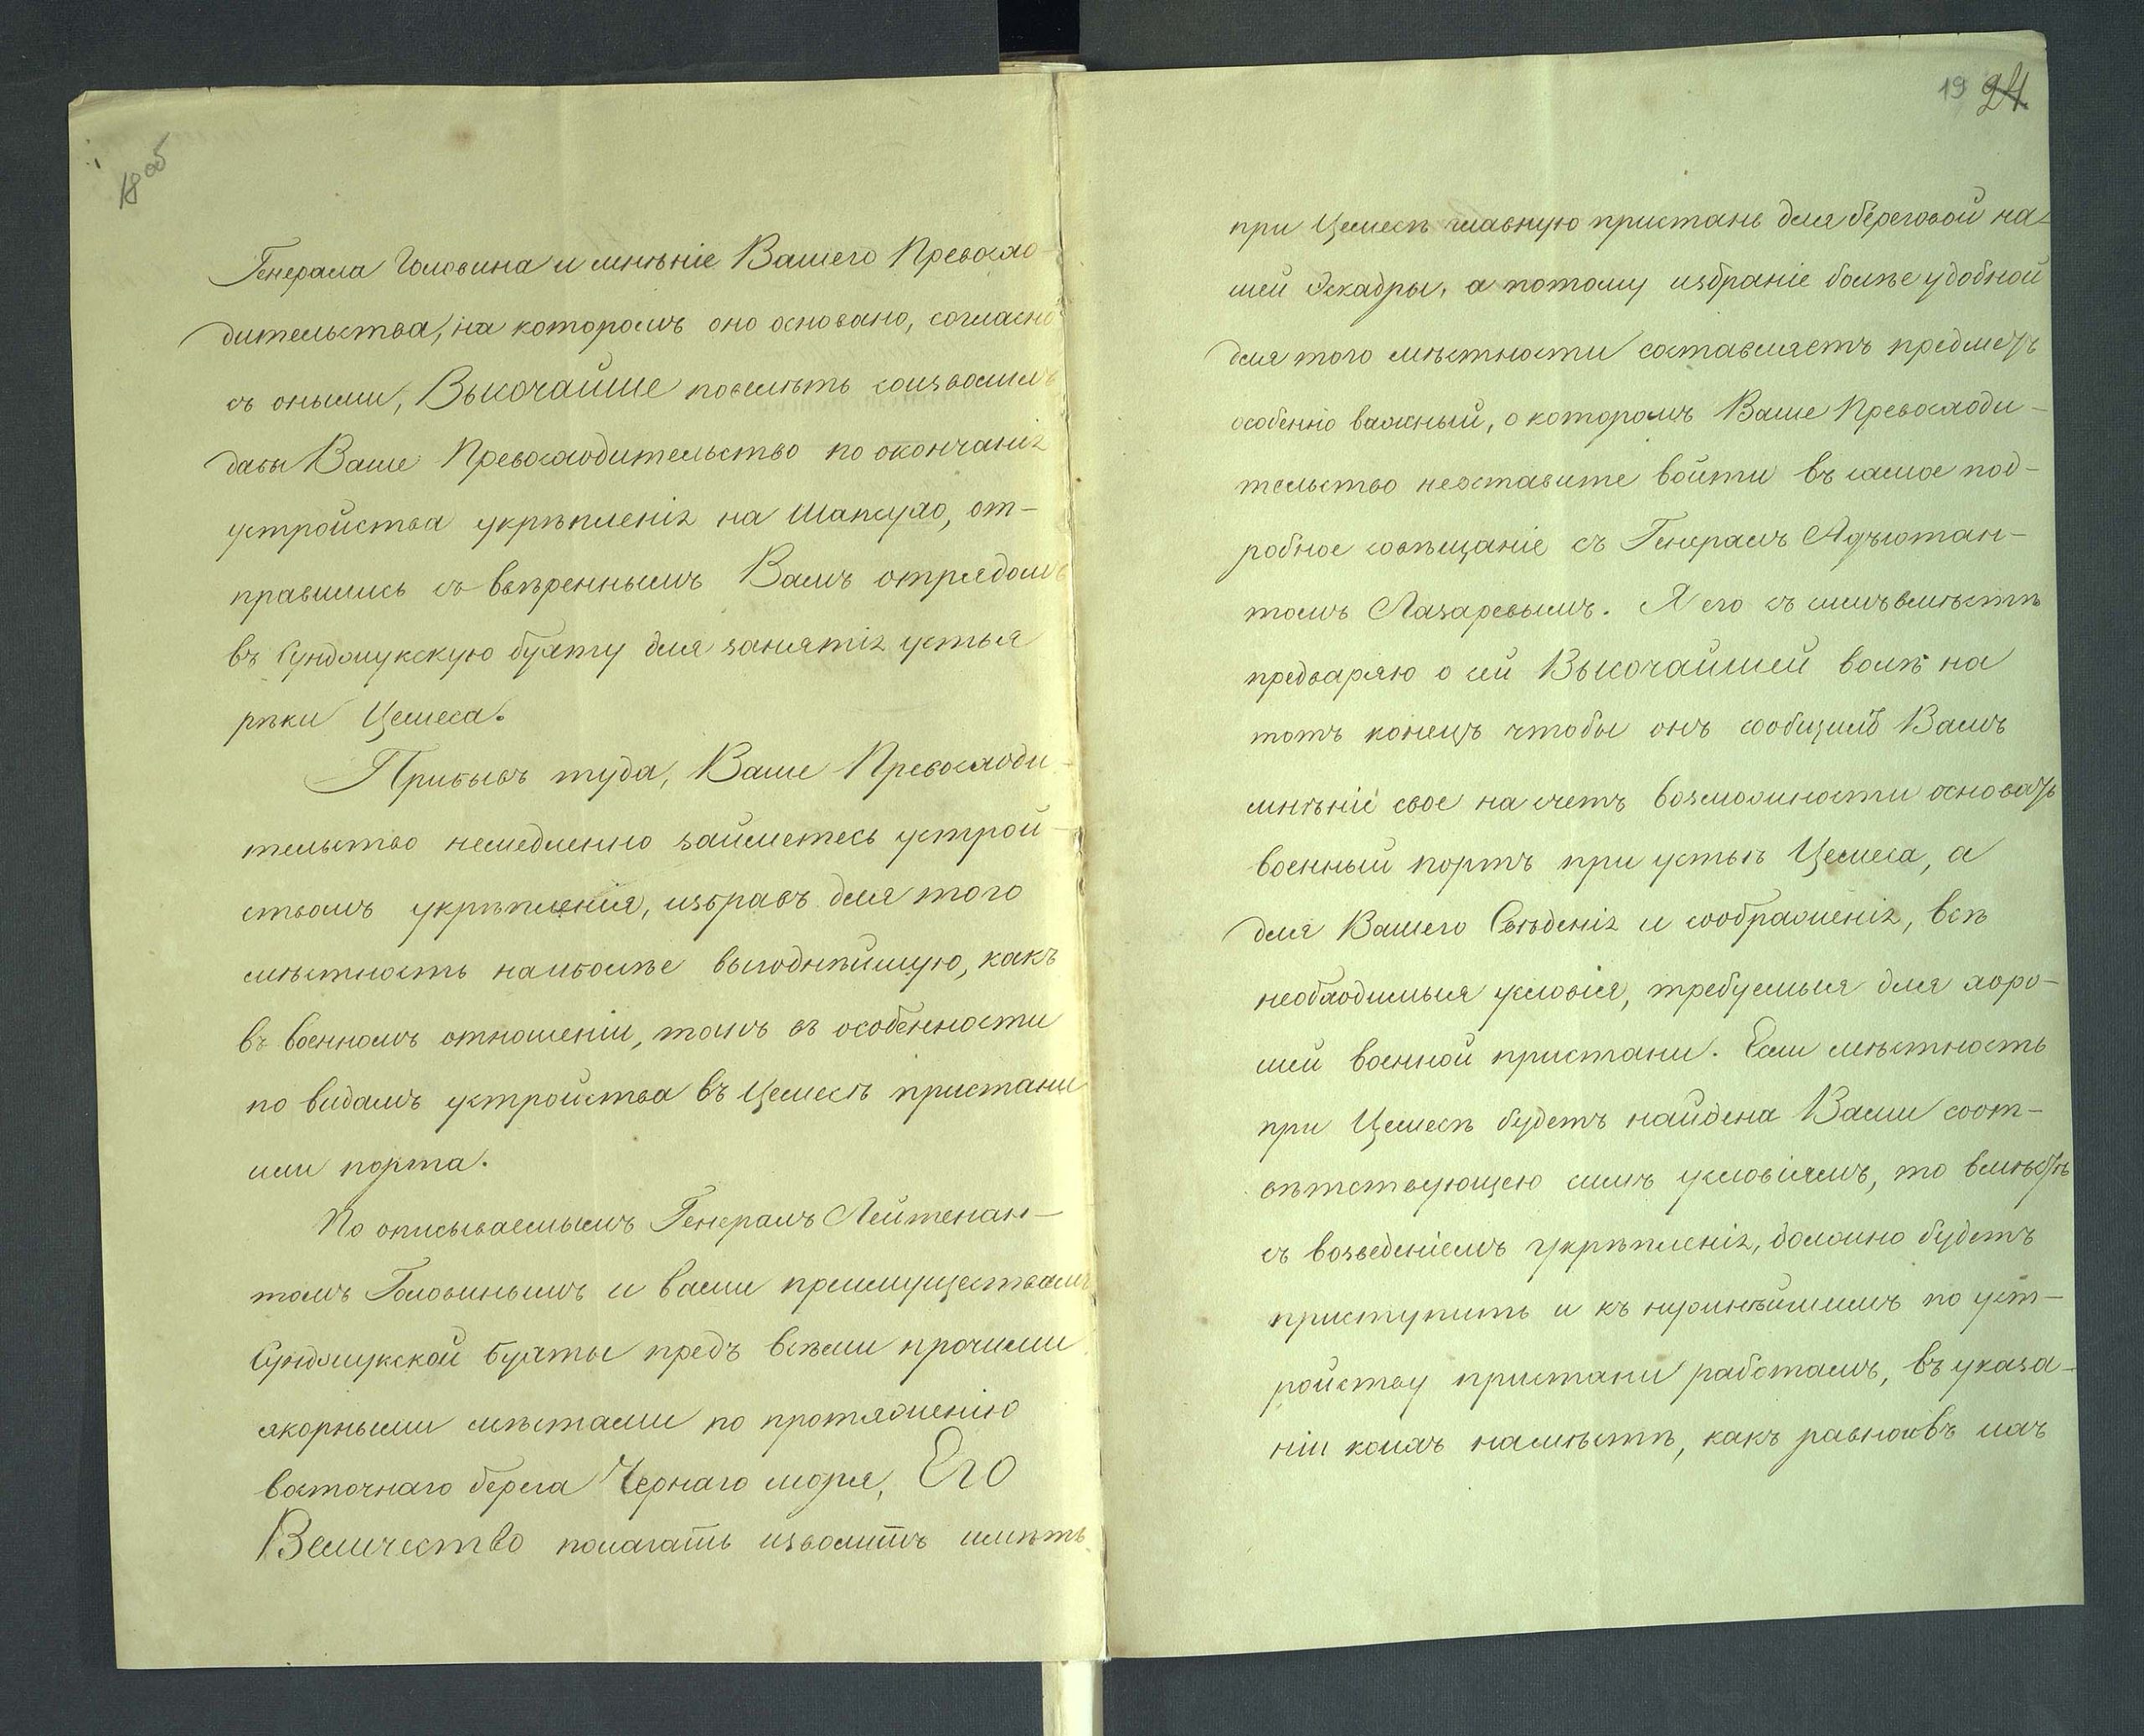 18 об
Генерала Головина и мнѣніе Вашего Превосхо-
дительства, на которомъ оно основано, согласно
съ оными, Высочайше повелѣть соизволилъ
дабы Ваше Превосходительство по окончаніи
устройства укрѣпленія на Шапсухо, от-
правились съ ввѣреннымъ Вамъ отрядомъ
въ Сунджукскую бухту для занятія устья
рѣки Цемеса.
Прибывъ туда, Ваше Превосходи-
тельство немедленно займетесь устрой-
ствомъ укрѣпленія, избравъ для того
мѣстность наиболѣе выгоднѣйшую, какъ
въ военномъ отношеніи, такъ въ особенности
по видамъ устройства въ Цемесѣ пристани
или порта.
По описываемымъ Генералъ Лейтенан-
томъ Головинымъ и вами преимуществамъ
Сунджукской бухты предъ всѣми прочими
якорными мѣстами по протяженію
восточнаго берега Чернаго моря, Его
Величество полагать изволитъ имѣть
19 24
при Цемесѣ главную пристань для береговой на-
шей эскадры, а потому избраніе болѣе удобной
для того мѣстности составляетъ предметъ
особенно важный, о которомъ Ваше Превосходи-
тельство неоставите войти въ самое под-
робное совѣщаніе съ Генералъ Адъютан-
томъ Лазаревымъ. Я его съ симъ вмѣстѣ
предваряю о сей Высочайшей волѣ на
тотъ конецъ чтобы онъ сообщилъ Вамъ
мнѣніе свое на счетъ возможности основать
военный портъ при устьѣ Цемеса, а
для Вашего Свѣденія и соображенія, всѣ
необходимыя условія, требуемыя для хоро-
шей военной пристани. Если мѣстность
при Цемесѣ будетъ найдена Вами соот-
вѣтствующею симъ условіямъ, то вмѣстѣ
съ возведеніемъ укрѣпленія, должно будетъ
приступить и къ нужнѣйшимъ по уст-
ройству пристани работамъ, въ указа-
ніи коихъ намѣстѣ, какъ равно въ